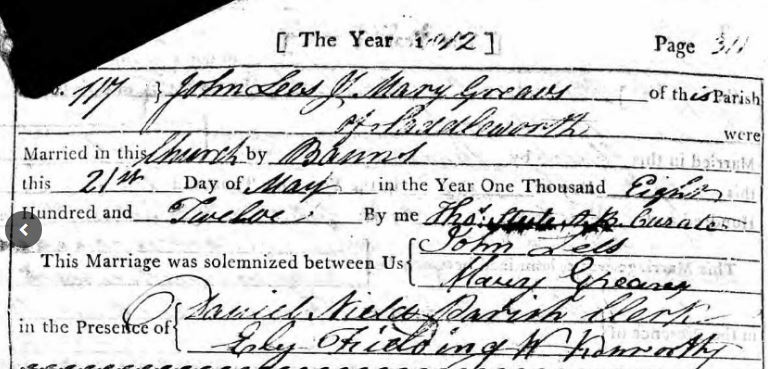 [ The Year 1812 ] Page 311
No. 117 } John Lees & Mary Greaves of this Parish
of Saddleworth were
Married in this Church by Banns
this 21st Day of May in the Year One Thousand Eight
Hundred and Twelve By me Thos. Curate
This Marriage was solemnized between Us { John Lees
Mary Greaves
in the Presence of { Daniel Nield Parish Clerk
Fielding W Kenworthy